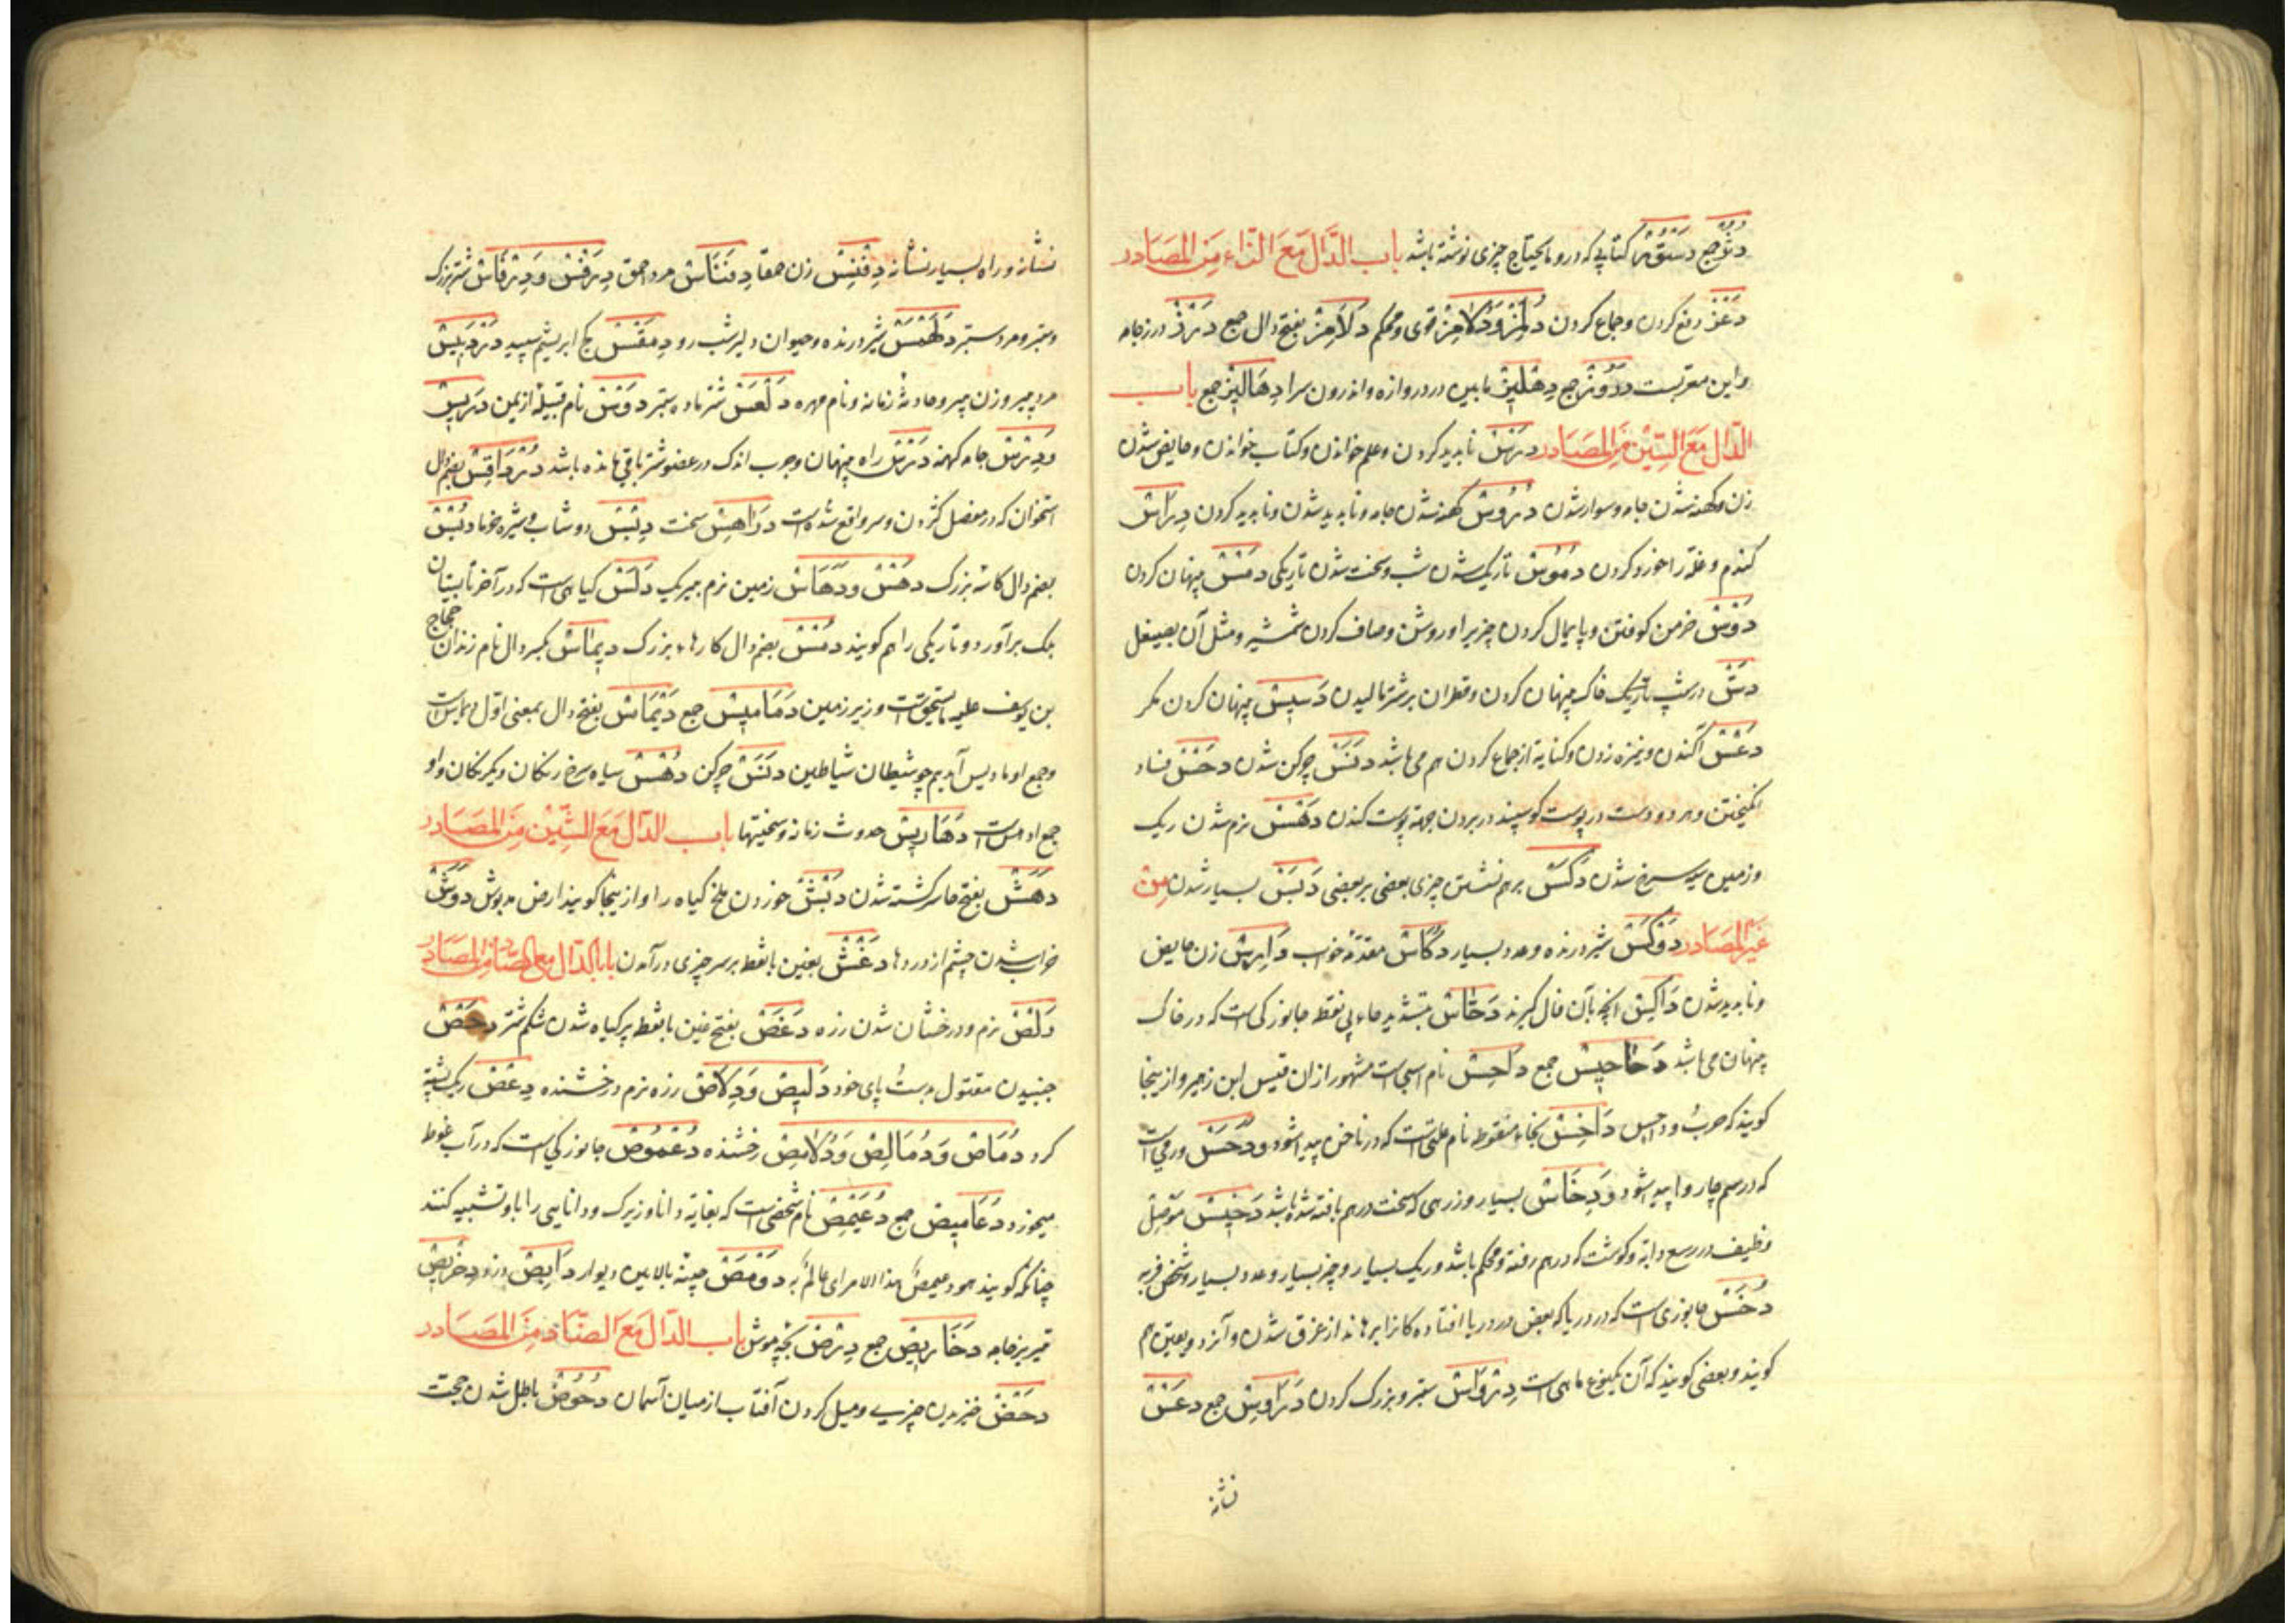 دُوْرْ جمع دَسْتُوْرْ کتابی که درو مایحتاج چیزی نوشته باشد باب الدّال مَعَ الزّاء مِنَ المصَادر
دَعْزْ دفع کردن و جماع کردن دُلَمِزْ وَدُلَامِزْ قوی و محکم دَلَامِزْ بفتح دال جمع دَرْزْ درز جامه
و این معربست دُرُوْزْ جمع دِهْلِیْزْ مابین در دروازه و اندرون سرا دَهَالِیْزْ جمع باب
الدّال مَعَ السّیْن مِنَ المصَادر دَرْسْ ناپدید کردن و علم خواندن و کتاب خواندن و حایض شدن
زن و کهنه شدن جامه و سوار شدن دُرُوْسْ کهنه شدن جامه و ناپدید شدن و ناپدید کردن دِرَاسْ
گندم و غله را خورد کردن دُمُوْسْ تاریک شدن شب و سخت شدن تاریکی دَمْسْ پنهان کردن
دَوْسْ خرمن کوفتن و پایمال کردن چیزیرا و روشن و صاف کردن شمشیر و مثل آن بصیقل
دَسّْ در شب تاریک خاک پنهان کردن و قطران بر شتر مالیدن دَسِیْسْ پنهان کردن مکر
دَعْسْ آکندن و نیزه زدن و کنایة از جماع کردن هم می باشد دَنَسْ چرکن شدن دَحْسْ فساد
انگیختن و هر دو دست در پوست گوسپند در بردن جهة پوست کندن دَهَسْ نرم شدن ریک
و زمین سیه سرخ شدن دَکْسْ برهم نشستن چیزی بعضی بر بعضی دَبَسْ بسیار شدن مِنْ
غَیْر المصَادر دَوْکَسْ شیر درنده و عدد بسیار دُکَاسْ مقدّمهٔ خواب دَارِسْ زن حایض
و ناپدید شدن دَاکِسْ انچه بآن فال گیرند دَحَّاسْ بتشدید حاء بی نقطه جانورکی است که در خاک
پنهان می باشد دَحَاحِیْسْ جمع دَاحِسْ نام اسپی است مشهور ازان قیس ابن زهیر و ازینجا
گویند که حرب داحس دَاخِسْ بخاء منقوطه نام علتی است که در ناخن پیدا شود و دَخَسْ ورمی است
که در سم چاروا پیدا شود وَدِخَاسْ بسیار و زرهی که سخت درهم بافته شده باشد دَخِیْسْ موصل
وظیف در رسغ دابه و گوشت که درهم رفته و محکم باشد و ریک بسیار و چیز بسیار و عدد بسیار و شخص فربه
دُخَسْ جانوری است که در دریا که بعضی در دریا افتاده کانرا برهاند از غرق شدن و آنرا دلفین هم
گویند و بعضی گویند که آن یکنوع ماهی است دِرْوَاسْ ستبر و بزرگ گردن دَرَاوِسْ جمع دَعْسْ
نشانه
نشانه و راه بسیار نشانه دِفْنِسْ زن حمقا دِفْنَاسْ مرد احمق دِرَفْسْ وَدِرْفَاسْ شتر بزرک
و ستبر و مرد ستبر دَلَهْمَسْ شیر درنده و حیوان دلیر شب رو دِمَقْسْ کج ابریشم سپید دَرْدَبِیْسْ
مرد پیر و زن پیر و حادثهٔ زمانه و نام مهره دَلْعَسْ شتر ماده ستبر دَوْسْ نام قبیله از یمن دَرِیْسْ
وَدِرْسْ جامه کهنه دَرْسْ راه پنهان و جرب اندک در عضو شتر باقی مانده باشد دُرْدَاقِسْ بضم دال
استخوان که در مفصل گردن و سر واقع شده است دَوَاهِسْ سخت دِبْسْ دوشاب و شیره خرما دُبْسْ
بضم دال کاسه بزرک دَهْسْ وَدَهَاسْ زمین نرم بیریک دَلَسْ کیاهی است که در آخر تابستان
برک برآورد و تاریکی را هم گویند دُمْسْ بضم دال کارهاء بزرک دِیْمَاسْ بکسر دال نام زندان حجاج
بن یوسف علیه ما یستحق است و زیر زمین دَمَامِیْسْ جمع دَیْمَاسْ بفتح دال بمعنی اول دیماس است
و جمع او دیامیس آید همچو شیطان شیاطین دَنَسْ چرکن دُهْسْ سیاه سرخ رنکان و یکرنکان واو
جمع ادهس است دَهَارِیْسْ حدوث زمانه و سختیها باب الدّال مَعَ الشّیْن مِنَ المصَادر
دَهَشْ بفتح ها سرگشته شدن دَبْشْ خوردن ملخ گیاه را و ازینجا گویند ارض مدبوش دَوَشْ
خراب شدن چشم از دردها دَغْشْ بغین بانقطه بر سر چیزی درآمدن باب الدّال مع الصّاد مِن المصَادر
دَلْصْ نرم و درخشان شدن زره دَغَصْ بفتح غین بانقطه پر گیاه شدن شکم شتر دَحْصْ
جنبیدن مقتول بدست و پای خود دَلِیْصْ وَدِلَاصْ زره نرم درخشنده دِعْصْ ریک پشته
گرد دُمَاصْ وَدُمَالِصْ وَدُلَامِصْ رخشنده دُعْمُوْصْ جانورکی است که در آب غوطه
میخورد دَعَامِیْصْ جمع دُعَیْمِصْ نام شخصی است که بغایة دانا و زیرک و دانایی را باو تشبیه کنند
چنانکه گویند هو دعیمصُ هذا الامر ای عالمٌ به دَوْمَصْ چینه بالایین دیوار دَایِصْ دزد دِخْرِیْصْ
تیریز جامه دَخَارِیْصْ جمع دِرْصْ بچه موش باب الدّال مَعَ الضّاد مِنَ المصَادر
دَحْضْ خیزیدن چیزی و میل کردن آفتاب از میان آسمان دُحُوْضْ باطل شدن حجت